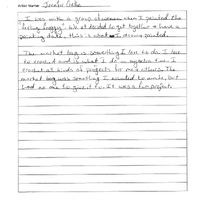 Artist Name: Jennifer
I was with a group of women when I painted the
"feeling happy". We all decided to get together & have a
painting date, this is what I painted.
The market bag is something I love to do. I love
to crochet and is what I do in my extra time. I
crochet all kinds of projects for me & others. The
market bag was something I wanted to make, but
had no one to give it to. It was a fun project.